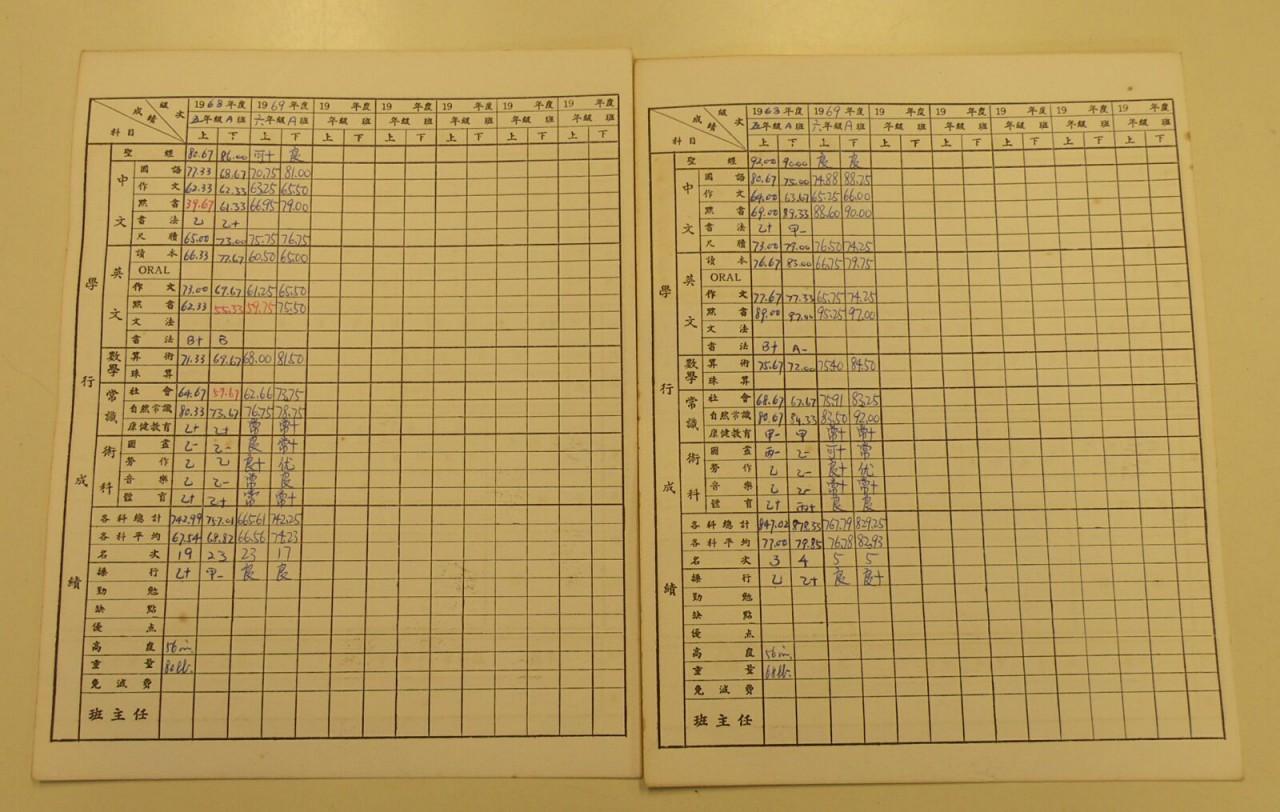 級次 成績 科目 1968年度 1969年度 19 年度 19 年度 19 年度 19 年度 19 年度
五年級A班 六年級A班 年級 班 年級 班 年級 班 年級 班 年級 班
上 下 上 下 上 下 上 下 上 下 上 下 上 下
學行成績
聖經 80.67 86.00 可+ 良
中文
國語 77.33 68.67 70.75 81.00
作文 62.33 62.33 63.25 65.50
默書 39.67 61.33 66.95 79.00
書法 乙 乙+
尺牘 65.00 73.00 75.75 76.75
英文
讀本 66.33 77.67 60.50 65.00
ORAL
作文 73.00 69.67 61.25 65.50
默書 62.33 55.33 59.75 75.50
文法
書法 B+ B
數學
算術 71.33 69.67 68.00 81.50
珠算
常識
社會 64.67 59.67 62.66 73.75
自然常識 80.33 73.67 76.75 78.75
康健教育 乙+ 乙+ 常 常+
術科
圖畫 乙- 乙- 良 常+
勞作 乙 乙 良+ 优
音樂 乙 乙- 常 良
體育 乙+ 乙+ 常 常+
各科總計 742.99 757.01 665.61 742.25
各科平均 67.54 68.82 66.56 74.23
名次 19 23 23 17
操行 乙+ 甲- 良 良
勤勉
缺點
優点
高度 56 in.
重量 80 lb.
免減費
班主任
級次 成績 科目 1968年度 1969年度 19 年度 19 年度 19 年度 19 年度 19 年度
五年級A班 六年級A班 年級 班 年級 班 年級 班 年級 班 年級 班
上 下 上 下 上 下 上 下 上 下 上 下 上 下
學行成績
聖經 92.00 90.00 良 良
中文
國語 80.67 75.00 74.88 88.75
作文 64.00 63.67 65.25 66.00
默書 69.00 89.33 88.60 90.00
書法 乙+ 甲-
尺牘 73.00 79.00 76.50 74.25
英文
讀本 76.67 83.00 66.75 79.75
ORAL
作文 77.67 77.33 65.75 74.25
默書 89.00 97.00 95.25 97.00
文法
書法 B+ A-
數學
算術 75.67 72.00 75.40 84.50
珠算
常識
社會 68.67 67.67 75.91 83.25
自然常識 80.67 84.33 83.50 92.00
康健教育 甲- 甲 常+ 常+
術科
圖畫 丙- 乙- 可+ 常
勞作 乙 乙- 良+ 优
音樂 乙 乙- 常+ 常+
體育 乙+ 丙+ 良 良
各科總計 847.02 878.33 767.79 829.25
各科平均 77.00 79.85 76.78 82.93
名次 3 4 5 5
操行 乙 乙+ 良 良+
勤勉
缺點
優点
高度 56 in.
重量 68 lb.
免減費
班主任